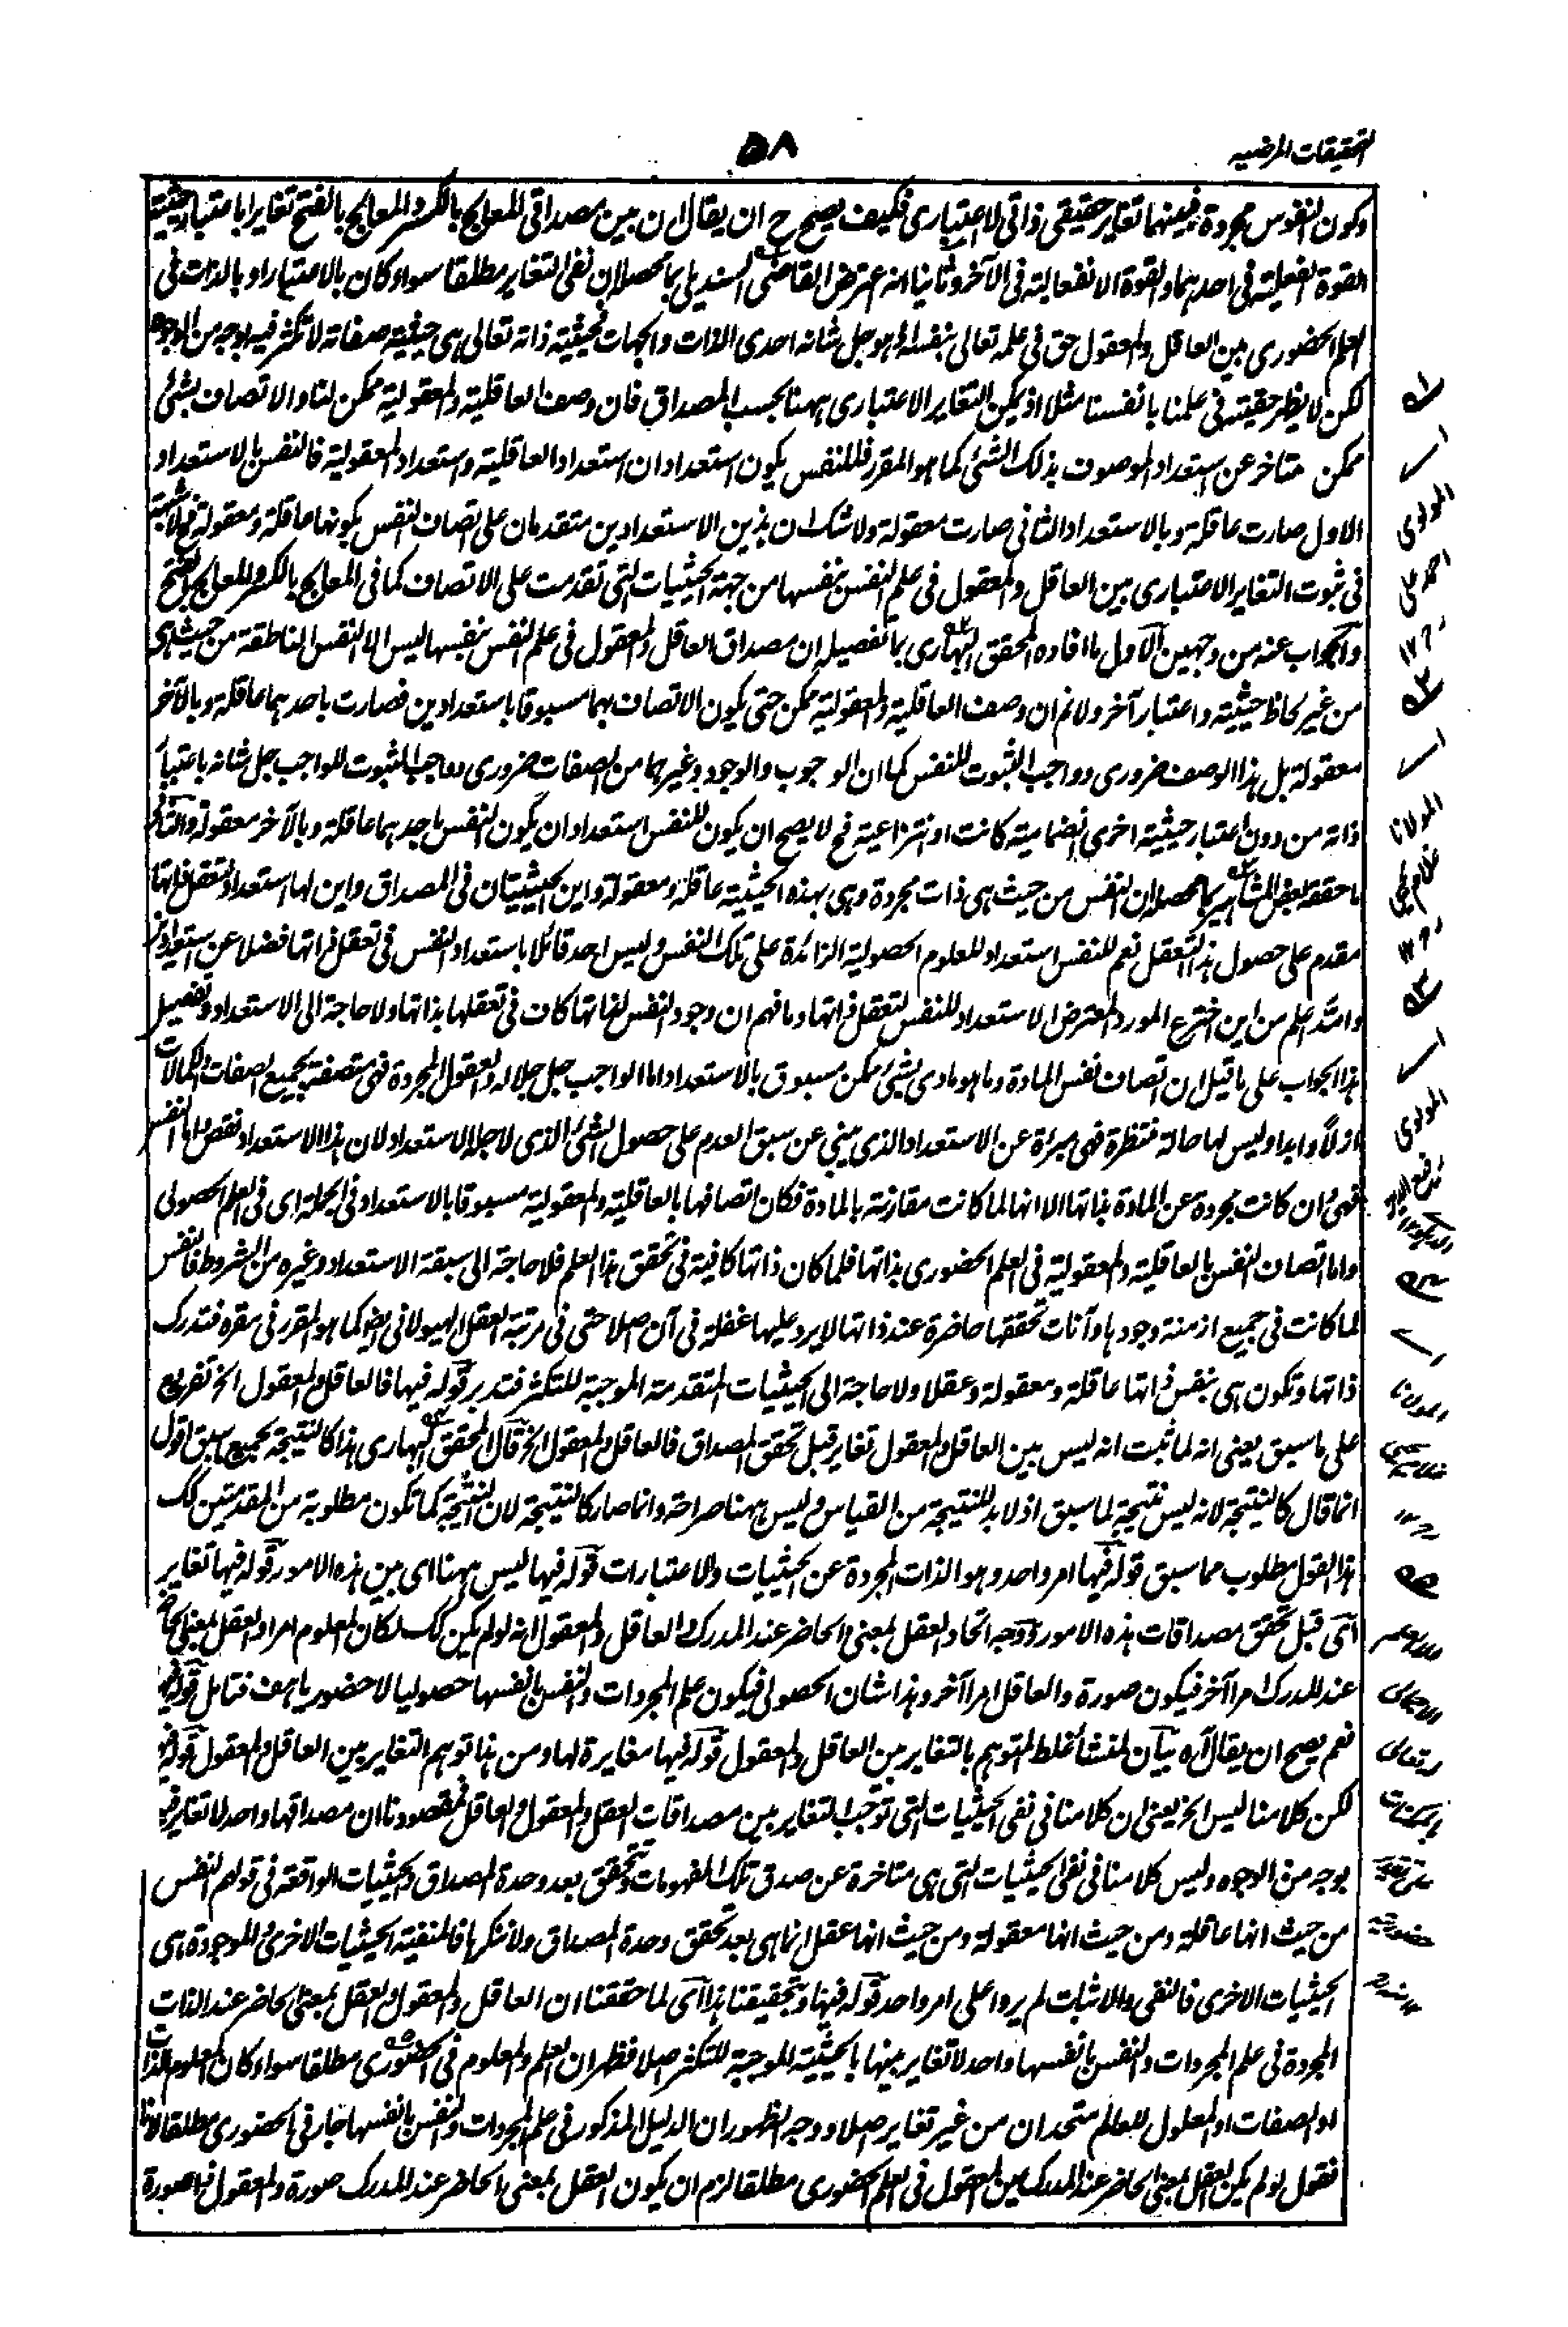 التحقيقات المرضيه
٥٨
وكون النفوس مجردة فبينهما تغاير حقيقى ذاتى لا اعتبارى فكيف يصح ح ان يقال ان بين مصداقى المعالج بالكسر والمعالج بالفتح تغايرا باعتبار حيثية
القوة الفعلية فى احدهما والقوة الانفعالية فى الآخر وثانيا انه اعترض القاضى السنديلى بما محصله ان نفى التغاير مطلقا سواء كان بالاعتبار او بالذات فى
العلم الحضورى بين العاقل والمعقول حق فى علمه تعالى بنفسه اذ هو جل شانه احدى الذات والجهات فحيثية ذاته تعالى هى حيثية صفاته لا تكثر فيه بوجه من الوجوه
لكن لا يظهر حقيته فى علمنا بانفسنا مثلا اذ يمكن التغاير الاعتبارى ههنا بحسب المصداق فان وصف العاقلية والمعقولية ممكن لنا والاتصاف بشئ
ممكن متاخر عن استعداد الموصوف بذلك الشئ كما هو المقرر فللنفس يكون استعدادان استعداد العاقلية واستعداد المعقولية فالنفس بالاستعداد
الاول صارت عاقلة وبالاستعداد الثانى صارت معقولة ولا شك ان هذين الاستعدادين متقدمان على اتصاف النفس بكونها عاقلة ومعقولة فلا شبهة
فى ثبوت التغاير الاعتبارى بين العاقل والمعقول فى علم النفس بنفسها من جهة الحيثيات التى تقدمت على الاتصاف كما فى المعالج بالكسر والمعالج بالفتح
والجواب عنه من وجهين الاول ما افاده المحقق البهارى بما تفصيله ان مصداق العاقل والمعقول فى علم النفس بنفسها ليس الا النفس الناطقة من حيث هى
من غير لحاظ حيثية واعتبار آخر ولا نم ان وصف العاقلية والمعقولية ممكن حتى يكون الاتصاف بهما مسبوقا باستعدادين فصارت باحدهما عاقلة وبالآخر
معقولة بل هذا الوصف ضرورى وواجب الثبوت للنفس كما ان الوجوب والوجود وغيرهما من الصفات ضرورى وواجب الثبوت للواجب جل شانه باعتبار
ذاته من دون اعتبار حيثية اخرى انضمامية كانت او انتزاعية فح لا يصح ان يكون للنفس استعدادان يكون النفس باحدهما عاقلة وبالآخر معقولة والثانى
ما حققه بعض المشاهير بما محصله ان النفس من حيث هى ذات مجردة وهى بهذه الحيثية عاقلة ومعقولة واين الحيثيتان فى المصداق واين لها استعداد لتعقل ذاتها
مقدم على حصول هذا التعقل نعم للنفس استعداد للعلوم الحصولية الزائدة على تلك النفس وليس احد قائلا باستعداد النفس فى تعقل ذاتها فضلا عن استعدادين
والله اعلم من اين اخترع المورد المعترض الاستعداد للنفس لتعقل ذاتها وما فهم ان وجود النفس لذاتها كاف فى تعقلها بذاتها ولا حاجة الى الاستعداد وتفصيل
هذا الجواب على ما قيل ان اتصاف نفس المادة وما هو مادى بشئ ممكن مسبوق بالاستعداد اما الواجب جل جلاله والعقول المجردة فهى متصفة بجميع الصفات والكمالات
ازلاً وابدا وليس لها حالة منتظرة فهى مبرئة عن الاستعداد الذى ينبئ عن سبق العدم على حصول الشئ الذى لاجله الاستعداد لان هذا الاستعداد نقص واما النفس
فهى وان كانت مجردة عن المادة بذاتها الا انها لما كانت مقارنة بالمادة فكان اتصافها بالعاقلية والمعقولية مسبوقا بالاستعداد فى الجملة اى فى العلم الحصولى
واما اتصاف النفس بالعاقلية والمعقولية فى العلم الحضورى بذاتها فلما كان ذاتها كافية فى تحقق هذا العلم فلا حاجة الى سبقة الاستعداد وغيره من الشروط فالنفس
لما كانت فى جميع ازمنة وجودها وآنات تحققها حاضرة عند ذاتها لا يرد عليها غفلة فى آن اصلا حتى فى مرتبة العقل الهيولانى ايضا كما هو المقرر فى مقره فتدرك
ذاتها وتكون هى بنفس ذاتها عاقلة ومعقولة وعقلا ولا حاجة الى الحيثيات المتقدمة الموجبة للتكثر فتدبر قوله فيها فالعاقل والمعقول الخ تفريع
على ما سبق يعنى انه لما ثبت انه ليس بين العاقل والمعقول تغاير قبل تحقق المصداق فالعاقل والمعقول الخ قال المحقق البهارى هذا كالنتيجة لجميع ما سبق اقول
انما قال كالنتيجة لانه ليس نتيجة لما سبق اذ لا بد للنتيجة من القياس وليس ههنا صراحة وانما صار كالنتيجة لان النتيجة كما تكون مطلوبة من المقدمتين كك
هذا القول مطلوب مما سبق قوله فيها امر واحد وهو الذات المجردة عن الحيثيات والاعتبارات قوله فيها ليس ههنا اى بين هذه الامور قوله فيها تغاير
اى قبل تحقق مصداقات هذه الامور ووجه اتحاد العقل بمعنى الحاضر عند المدرك والعاقل والمعقول انه لو لم يكن كك لكان المعلوم امرا والعقل بمعنى الحاضر
عند المدرك امرا آخر فيكون صورة والعاقل امرا آخر وهذا شان الحصولى فيكون علم المجردات والنفس بانفسها حصوليا لا حضوريا هف فتامل قوله فيها
نعم يصح ان يقال آه بيان لمنشأ غلط المتوهم بالتغاير بين العاقل والمعقول قوله فيها مغايرة لها ومن هنا توهم التغاير بين العاقل والمعقول قوله فيها
لكن كلامنا ليس الخ يعنى ان كلامنا فى نفى الحيثيات التى توجب التغاير بين مصداقات العقل والمعقول والعاقل فمقصودنا ان مصداقها واحد لا تغاير فيه
بوجه من الوجوه وليس كلامنا فى نفى الحيثيات التى هى متاخرة عن صدق تلك المفهومات وتحقق بعد وحدة المصداق والحيثيات الواقعة فى قولهم النفس
من حيث انها عاقلة ومن حيث انها معقولة ومن حيث انها عقل انما هى بعد تحقق وحدة المصداق ولا ننكرها فالمنفية الحيثيات الاخرى والموجودة هى
الحيثيات الاخرى فالنفى والاثبات لم يردا على امر واحد قوله فيها وبتحقيقنا هذا اى لما حققنا ان العاقل والمعقول والعقل بمعنى الحاضر عند الذات
المجردة فى علم المجردات والنفس بانفسها واحد لا تغاير بينها بالحيثية الموجبة للتكثر اصلا فظهر ان العلم والمعلوم فى الحضورى مطلقا سواء كان المعلوم الذات
او الصفات او المعلول للعالم متحدان من غير تغاير اصلا ووجه الظهور ان الدليل المذكور فى علم المجردات والنفس بانفسها جار فى الحضورى مطلقا لانا
نقول لو لم يكن العقل بمعنى الحاضر عند المدرك عين المعقول فى العلم الحضورى مطلقا لزم ان يكون العقل بمعنى الحاضر عند المدرك صورة والمعقول ذا صورة
المولوى
المولانا
المولوى